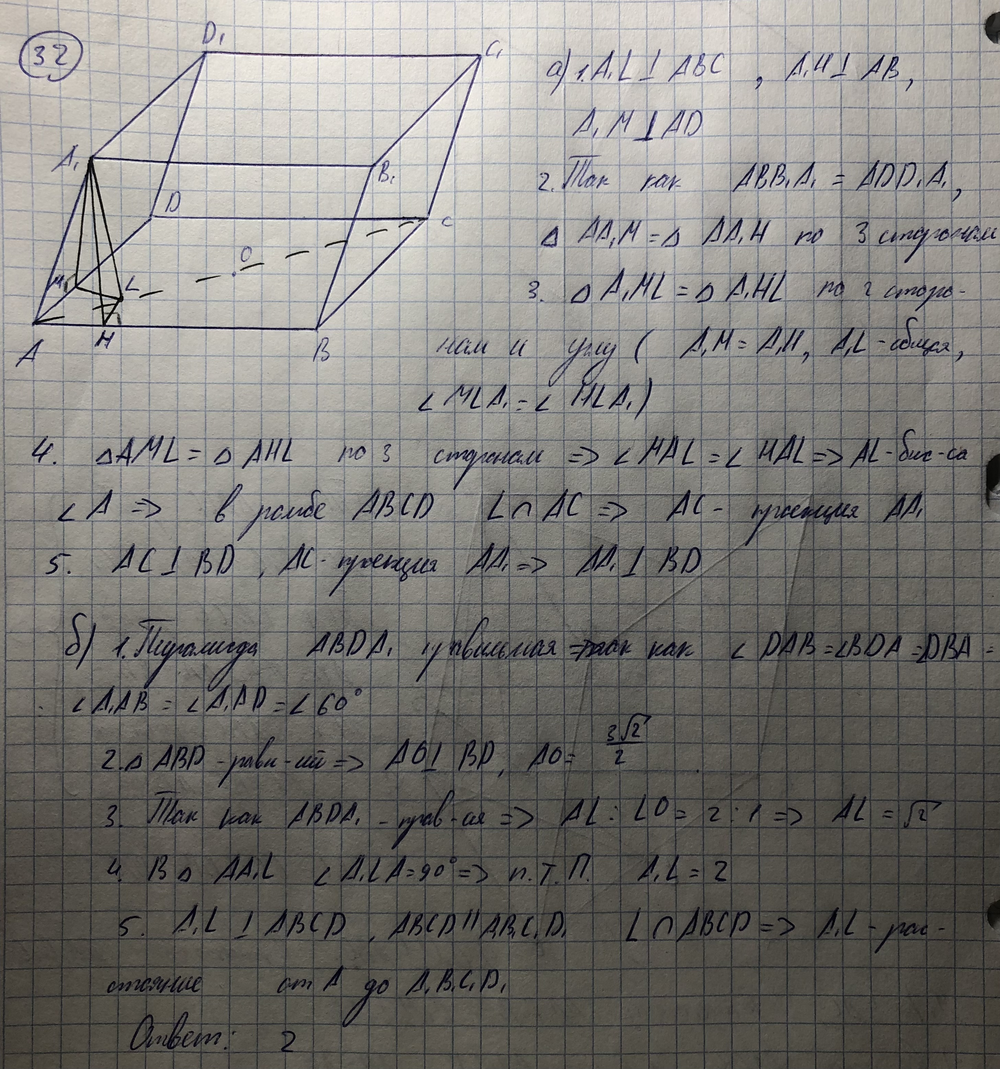 32
D₁
C₁
A₁
B₁
D
C
O
M
L
A
H
B
а) 1. A₁L ⊥ ABC , A₁H ⊥ AB,
A₁M ⊥ AD
2. Так как ABB₁A₁ = ADD₁A₁,
△ AA₁M = △ AA₁H по 3 сторонам
3. △ A₁ML = △ A₁HL по 2 сторо-
нам и углу ( A₁M = A₁H, A₁L - общая,
∠ MLA₁ = ∠ HLA₁)
4. △AML = △ AHL по 3 сторонам => ∠ MAL = ∠ HAL => AL - бис-са
∠ A => в ромбе ABCD L ∩ AC => AC - проекция AA₁
5. AC ⊥ BD , AC - проекция AA₁ => AA₁ ⊥ BD
б) 1. Пирамида ABDA₁ правильная так как ∠ DAB = ∠BDA = DBA =
∠ A₁AB = ∠ A₁AD = ∠ 60°
2. △ ABD - равн-ий => AO ⊥ BD, AO = 3√2/2
3. Так как ABDA₁ - прав-ая => AL : LO = 2 : 1 => AL = √2
4. В △ AA₁L ∠ A₁LA = 90° => п. Т. П. A₁L = 2
5. A₁L ⊥ ABCD , ABCD || A₁B₁C₁D₁ L ∩ ABCD => A₁L - рас-
стояние от A до A₁B₁C₁D₁
Ответ: 2